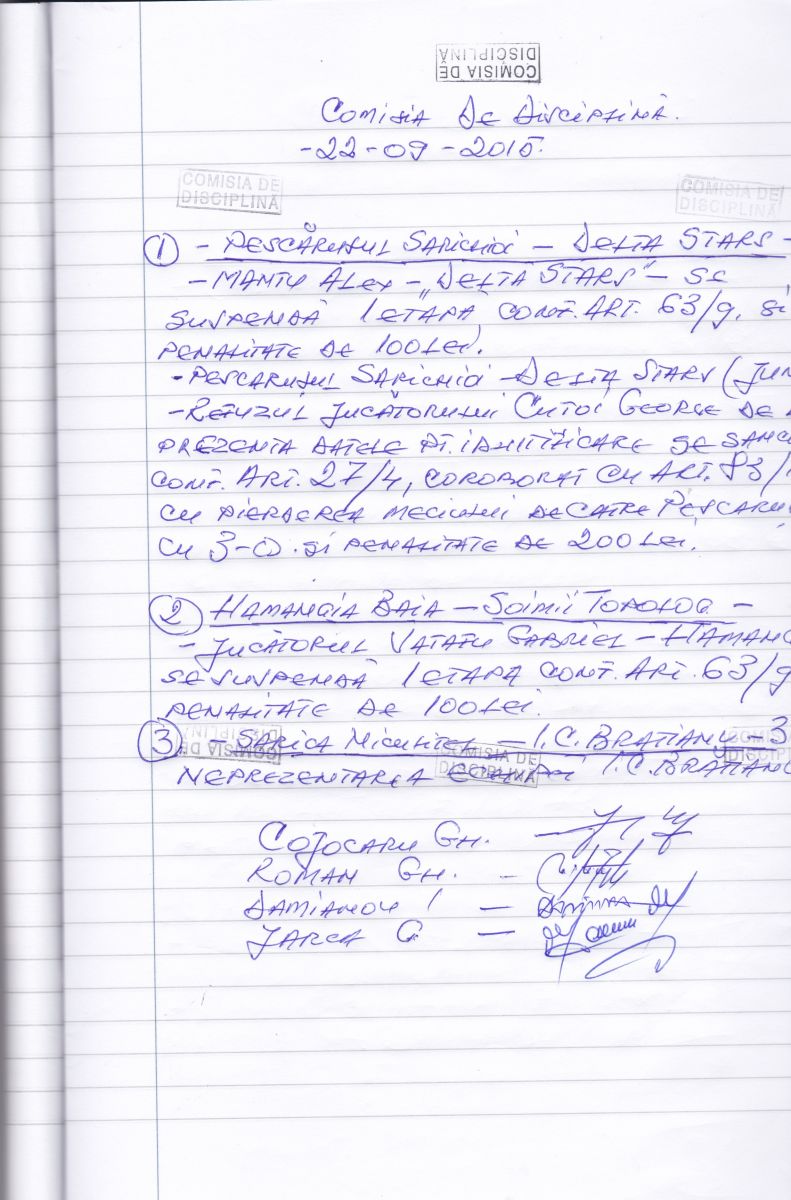 COMISIA DE
DISCIPLINĂ
COMISIA DE DISCIPLINĂ.
-22-09-2015.
COMISIA DE
DISCIPLINĂ
COMISIA DE
DISCIPLINĂ
① - PESCĂRUȘUL SARICHIOI - DELTA STARS -
- MANTU ALEX - „DELTA STARS" - SE
SUSPENDĂ 1 ETAPĂ CONF. ART. 63/g, și
PENALITATE DE 100 LEI.
- PESCARUȘUL SARICHIOI - DELTA STARS (JUN
- REFUZUL JUCĂTORULUI CUTOI GEORGE DE A
PREZENTA DATELE PT. IDENTIFICARE SE SANC
CONF. ART. 27/4, COROBORAT CU ART. 83/
CU PIERDEREA MECIULUI DE CATRE PESCARU
CU 3-0. și PENALITATE DE 200 LEI.
② HAMANGIA BAIA - ȘOIMII TOPOLOG -
- JUCĂTORUL VATAFU GABRIEL - HAMANG
SE SUSPENDĂ 1 ETAPĂ CONF. ART. 63/g
PENALITATE DE 100 LEI.
③ - SARICA NICULITEL - I.C. BRATIANU - 3
COMISIA DE
DISCIPLINĂ
COMISIA DE
DISCIPLINĂ
NEPREZENTAREA ECHIPEI I.C. BRATIANU
COJOCARU GH. -
ROMAN GH. -
DAMIANOV I -
JARCA G -